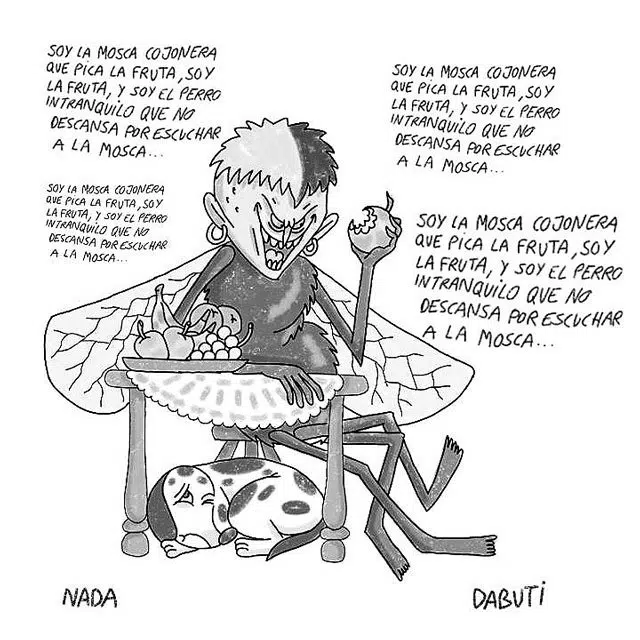 SOY LA MOSCA COJONERA
QUE PICA LA FRUTA, SOY
LA FRUTA, Y SOY EL PERRO
INTRANQUILO QUE NO
DESCANSA POR ESCUCHAR
A LA MOSCA...
SOY LA MOSCA COJONERA
QUE PICA LA FRUTA, SOY
LA FRUTA, Y SOY EL PERRO
INTRANQUILO QUE NO
DESCANSA POR ESCUCHAR
A LA MOSCA...
SOY LA MOSCA COJONERA
QUE PICA LA FRUTA, SOY
LA FRUTA, Y SOY EL PERRO
INTRANQUILO QUE NO
DESCANSA POR ESCUCHAR
A LA MOSCA...
SOY LA MOSCA COJONERA
QUE PICA LA FRUTA, SOY
LA FRUTA, Y SOY EL PERRO
INTRANQUILO QUE NO
DESCANSA POR ESCUCHAR
A LA MOSCA...
NADA
DABUTi